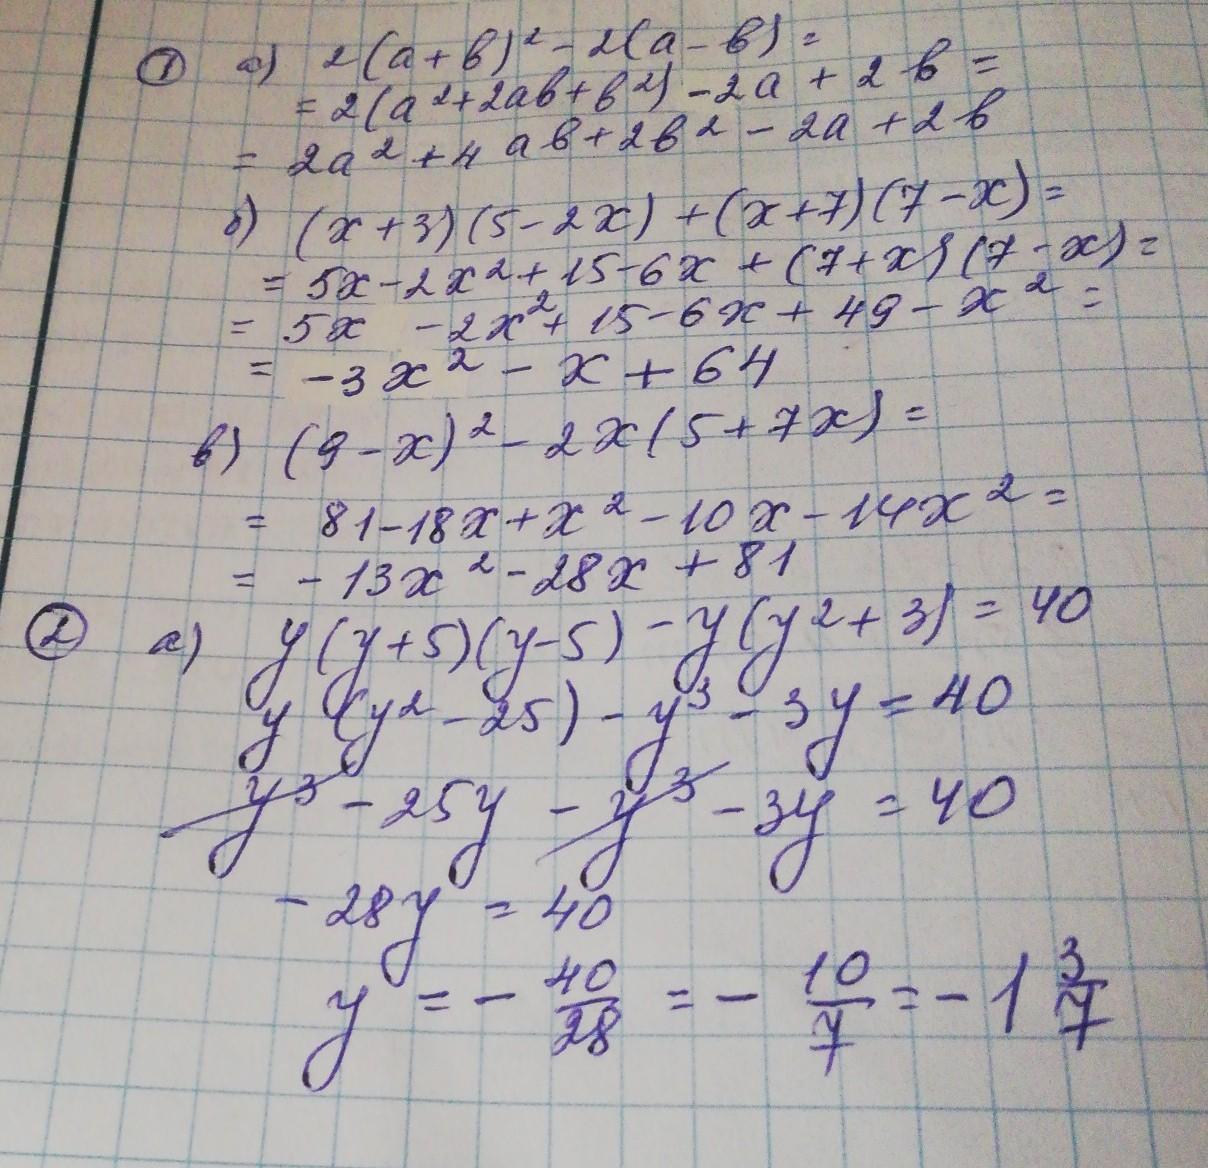 ① а) 2(а+в)² - 2(а-в) =
= 2(а²+2ав+в²) - 2а + 2в =
= 2а² + 4ав + 2в² - 2а + 2в
б) (x+3)(5-2x) + (x+7)(7-x) =
= 5x - 2x² + 15 - 6x + (7+x)(7-x) =
= 5x - 2x² + 15 - 6x + 49 - x² =
= -3x² - x + 64
в) (9-x)² - 2x(5+7x) =
= 81 - 18x + x² - 10x - 14x² =
= -13x² - 28x + 81
② а) y(y+5)(y-5) - y(y²+3) = 40
y(y²-25) - y³ - 3y = 40
y³ - 25y - y³ - 3y = 40
-28y = 40
y = - 40/28 = - 10/7 = - 1 3/7